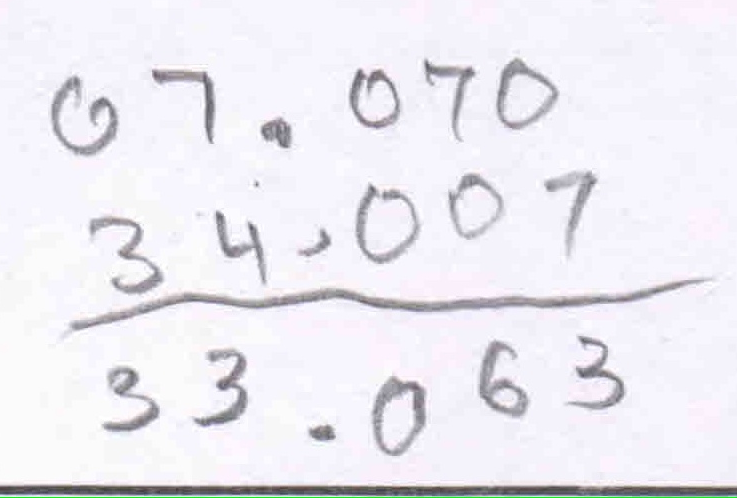 67.070
34.007
33.063